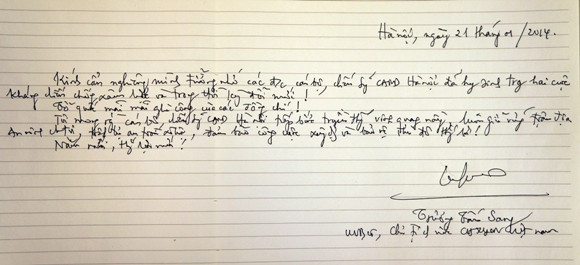 Hà nội, ngày 21 tháng 01/2014.
Kính cẩn nghiêng mình tưởng nhớ các đ/c cán bộ, chiến sỹ CAND Hà nội đã hy sinh trong hai cuộc
kháng chiến chống xâm lược và trong thời kỳ đổi mới!
Tổ quốc mãi mãi ghi công của các đồng chí!
Tôi mong rằng cán bộ, chiến sỹ CAND Hà nội tiếp bước truyền thống vinh quang này, luôn giữ vững trận địa
An ninh chính trị, trật tự an toàn xã hội, đảm bảo công cuộc xây dựng và bảo vệ thủ đô
Năm mới, thắng lợi mới!
Trương Tấn Sang
UVBCT, Chủ tịch nước CHXHCN Việt nam